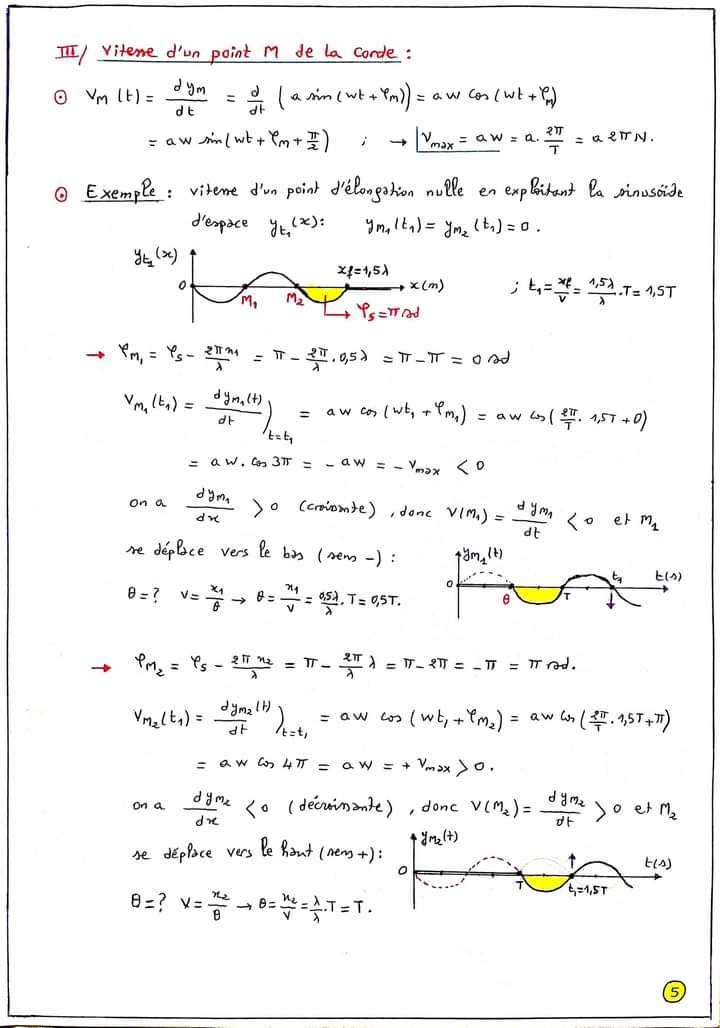 III/ Vitesse d'un point M de la corde :
⊙ V_M (t) = dy_M/dt = d/dt (a sin(wt + φ_M)) = a w cos(wt + φ_M)
= a w sin(wt + φ_M + π/2) ; → V_max = a w = a. 2π/T = a 2π N.
⊙ Exemple : vitesse d'un point d'élongation nulle en exploitant la sinusoïde
d'espace y_t₁(x) : y_M₁(t₁) = y_M₂(t₁) = 0.
y_t₁(x)
x_f = 1,5λ
0 M₁ M₂ x(m) ; t₁ = x_f/V = 1,5λ/λ .T = 1,5T
φ_s = π rad
→ φ_M₁ = φ_s - 2πx₁/λ = π - 2π/λ . 0,5λ = π - π = 0 rad
V_M₁(t₁) = dy_M₁(t)/dt )_t=t₁ = a w cos(wt₁ + φ_M₁) = a w cos(2π/T . 1,5T + 0)
= a w. cos 3π = - a w = - V_max < 0
on a dy_M₁/dx > 0 (croissante), donc V(M₁) = dy_M₁/dt < 0 et M₁
se déplace vers le bas (sens -) :
y_M₁(t)
0 θ T t₁ t(s)
θ = ? V = x₁/θ → θ = x₁/V = 0,5λ/λ . T = 0,5T.
→ φ_M₂ = φ_s - 2πx₂/λ = π - 2π/λ λ = π - 2π = - π = π rad.
V_M₂(t₁) = dy_M₂(t)/dt )_t=t₁ = a w cos (wt₁ + φ_M₂) = a w cos (2π/T . 1,5T + π)
= a w cos 4π = a w = + V_max > 0.
on a dy_M₂/dx < 0 (décroissante), donc V(M₂) = dy_M₂/dt > 0 et M₂
se déplace vers le haut (sens +) :
y_M₂(t)
0 T t₁=1,5T t(s)
θ = ? V = x₂/θ → θ = x₂/V = λ/λ .T = T.
5